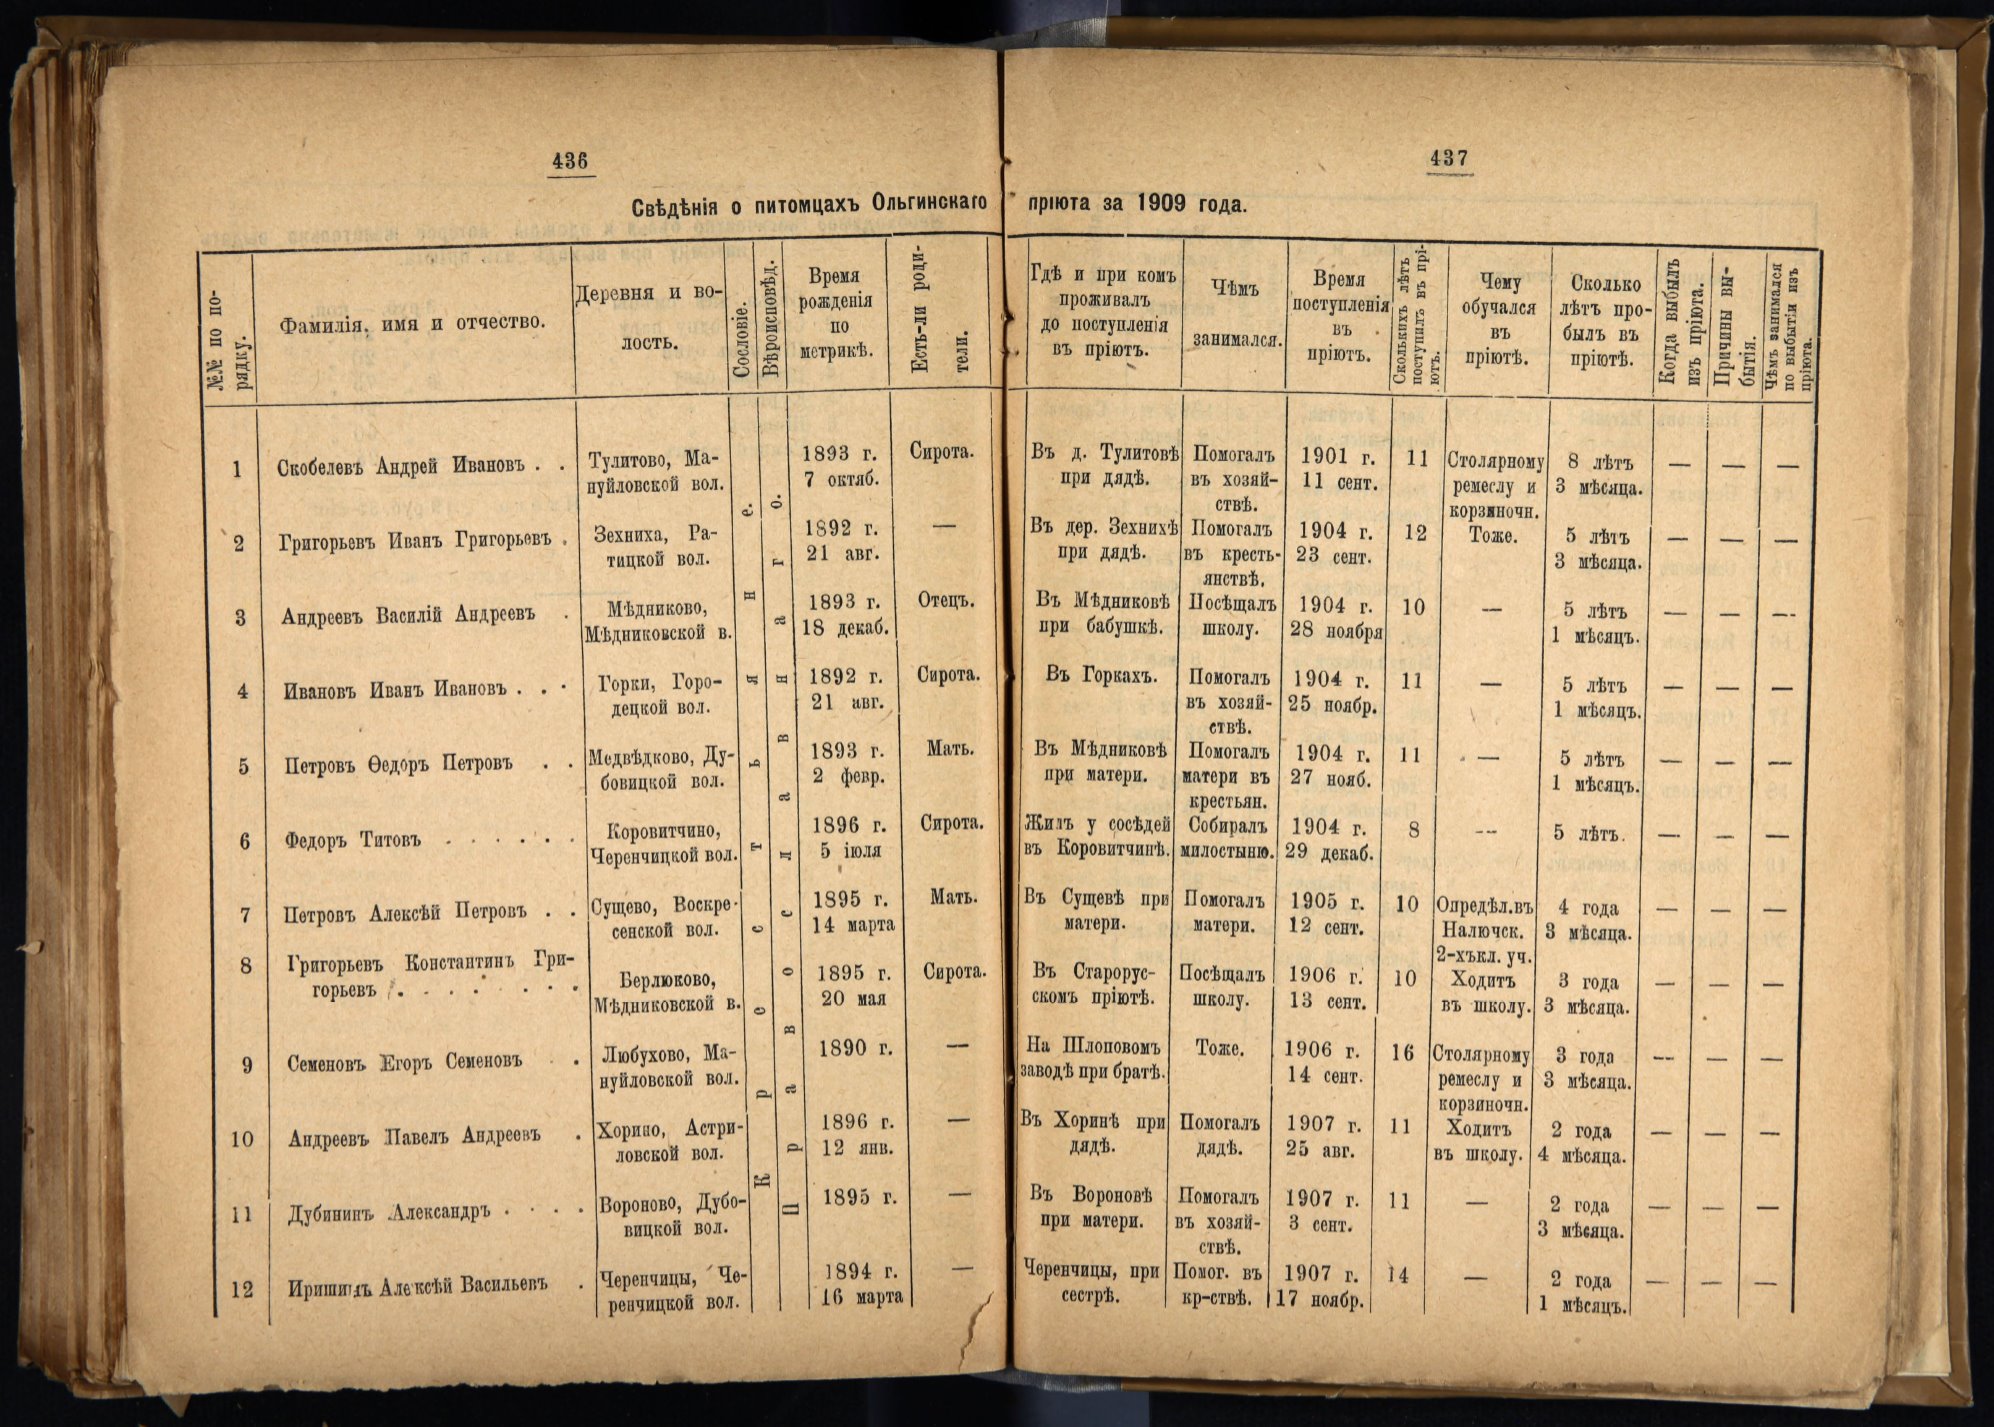 436
437
Свѣдѣнія о питомцахъ Ольгинскаго пріюта за 1909 года.
№№ по по-
рядку.
Фамилія, имя и отчество.
Деревня и во-
лость.
Сословіе.
Вѣроисповѣд.
Время
рожденія
по
метрикѣ.
Есть-ли роди-
тели.
Гдѣ и при комъ
проживалъ
до поступленія
въ пріютъ.
Чѣмъ
занимался.
Время
поступленія
въ
пріютъ.
Сколькихъ лѣтъ
поступилъ въ прі-
ютъ.
Чему
обучался
въ
пріютѣ.
Сколько
лѣтъ про-
былъ въ
пріютѣ.
Когда выбылъ
изъ пріюта.
Причины вы-
бытія.
Чѣмъ занимался
по выбытіи изъ
пріюта.
Крестьяне.
Православнаго.
1 Скобелевъ Андрей Ивановъ . . Тулитово, Ма- 1893 г. Сирота. Въ д. Тулитовѣ Помогалъ 1901 г. 11 Столярному 8 лѣтъ — — —
нуйловской вол. 7 октяб. при дядѣ. въ хозяй- 11 сент. ремеслу и 3 мѣсяца.
ствѣ. корзиночн.
2 Григорьевъ Иванъ Григорьевъ . Зехниха, Ра- 1892 г. — Въ дер. Зехнихѣ Помогалъ 1904 г. 12 Тоже. 5 лѣтъ — — —
тицкой вол. 21 авг. при дядѣ. въ кресть- 23 сент. 3 мѣсяца.
янствѣ.
3 Андреевъ Василій Андреевъ . Мѣдниково, 1893 г. Отецъ. Въ Мѣдниковѣ Посѣщалъ 1904 г. 10 — 5 лѣтъ — — —
Мѣдниковской в. 18 декаб. при бабушкѣ. школу. 28 ноября 1 мѣсяцъ.
4 Ивановъ Иванъ Ивановъ . . . Горки, Горо- 1892 г. Сирота. Въ Горкахъ. Помогалъ 1904 г. 11 — 5 лѣтъ — — —
децкой вол. 21 авг. въ хозяй- 25 ноябр. 1 мѣсяцъ.
ствѣ.
5 Петровъ Ѳедоръ Петровъ . . Медвѣдково, Ду- 1893 г. Мать. Въ Мѣдниковѣ Помогалъ 1904 г. 11 — 5 лѣтъ — — —
бовицкой вол. 2 февр. при матери. матери въ 27 нояб. 1 мѣсяцъ.
крестьян.
6 Федоръ Титовъ . . . . . . Коровитчино, 1896 г. Сирота. Жилъ у сосѣдей Собиралъ 1904 г. 8 — 5 лѣтъ. — — —
Черенчицкой вол. 5 іюля въ Коровитчинѣ. милостыню. 29 декаб.
7 Петровъ Алексѣй Петровъ . . Сущево, Воскре- 1895 г. Мать. Въ Сущевѣ при Помогалъ 1905 г. 10 Опредѣл. въ 4 года — — —
сенской вол. 14 марта матери. матери. 12 сент. Налючск. 3 мѣсяца.
2-хъкл. уч.
8 Григорьевъ Константинъ Гри- Берлюково, 1895 г. Сирота. Въ Старорус- Посѣщалъ 1906 г. 10 Ходитъ 3 года — — —
горьевъ . . . . . . . Мѣдниковской в. 20 мая скомъ пріютѣ. школу. 13 сент. въ школу. 3 мѣсяца.
9 Семеновъ Егоръ Семеновъ . Любухово, Ма- 1890 г. — На Шлоповомъ Тоже. 1906 г. 16 Столярному 3 года — — —
нуйловской вол. заводѣ при братѣ. 14 сент. ремеслу и 3 мѣсяца.
корзиночн.
10 Андреевъ Павелъ Андреевъ . Хорино, Астри- 1896 г. — Въ Хоринѣ при Помогалъ 1907 г. 11 Ходитъ 2 года — — —
ловской вол. 12 янв. дядѣ. дядѣ. 25 авг. въ школу. 4 мѣсяца.
11 Дубининъ Александръ . . . . Вороново, Дубо- 1895 г. — Въ Вороновѣ Помогалъ 1907 г. 11 — 2 года — — —
вицкой вол. при матери. въ хозяй- 3 сент. 3 мѣсяца.
ствѣ.
12 Иришинъ Алексѣй Васильевъ . Черенчицы, Че- 1894 г. — Черенчицы, при Помог. въ 1907 г. 14 — 2 года — — —
ренчицкой вол. 16 марта сестрѣ. кр-ствѣ. 17 ноябр. 1 мѣсяцъ.